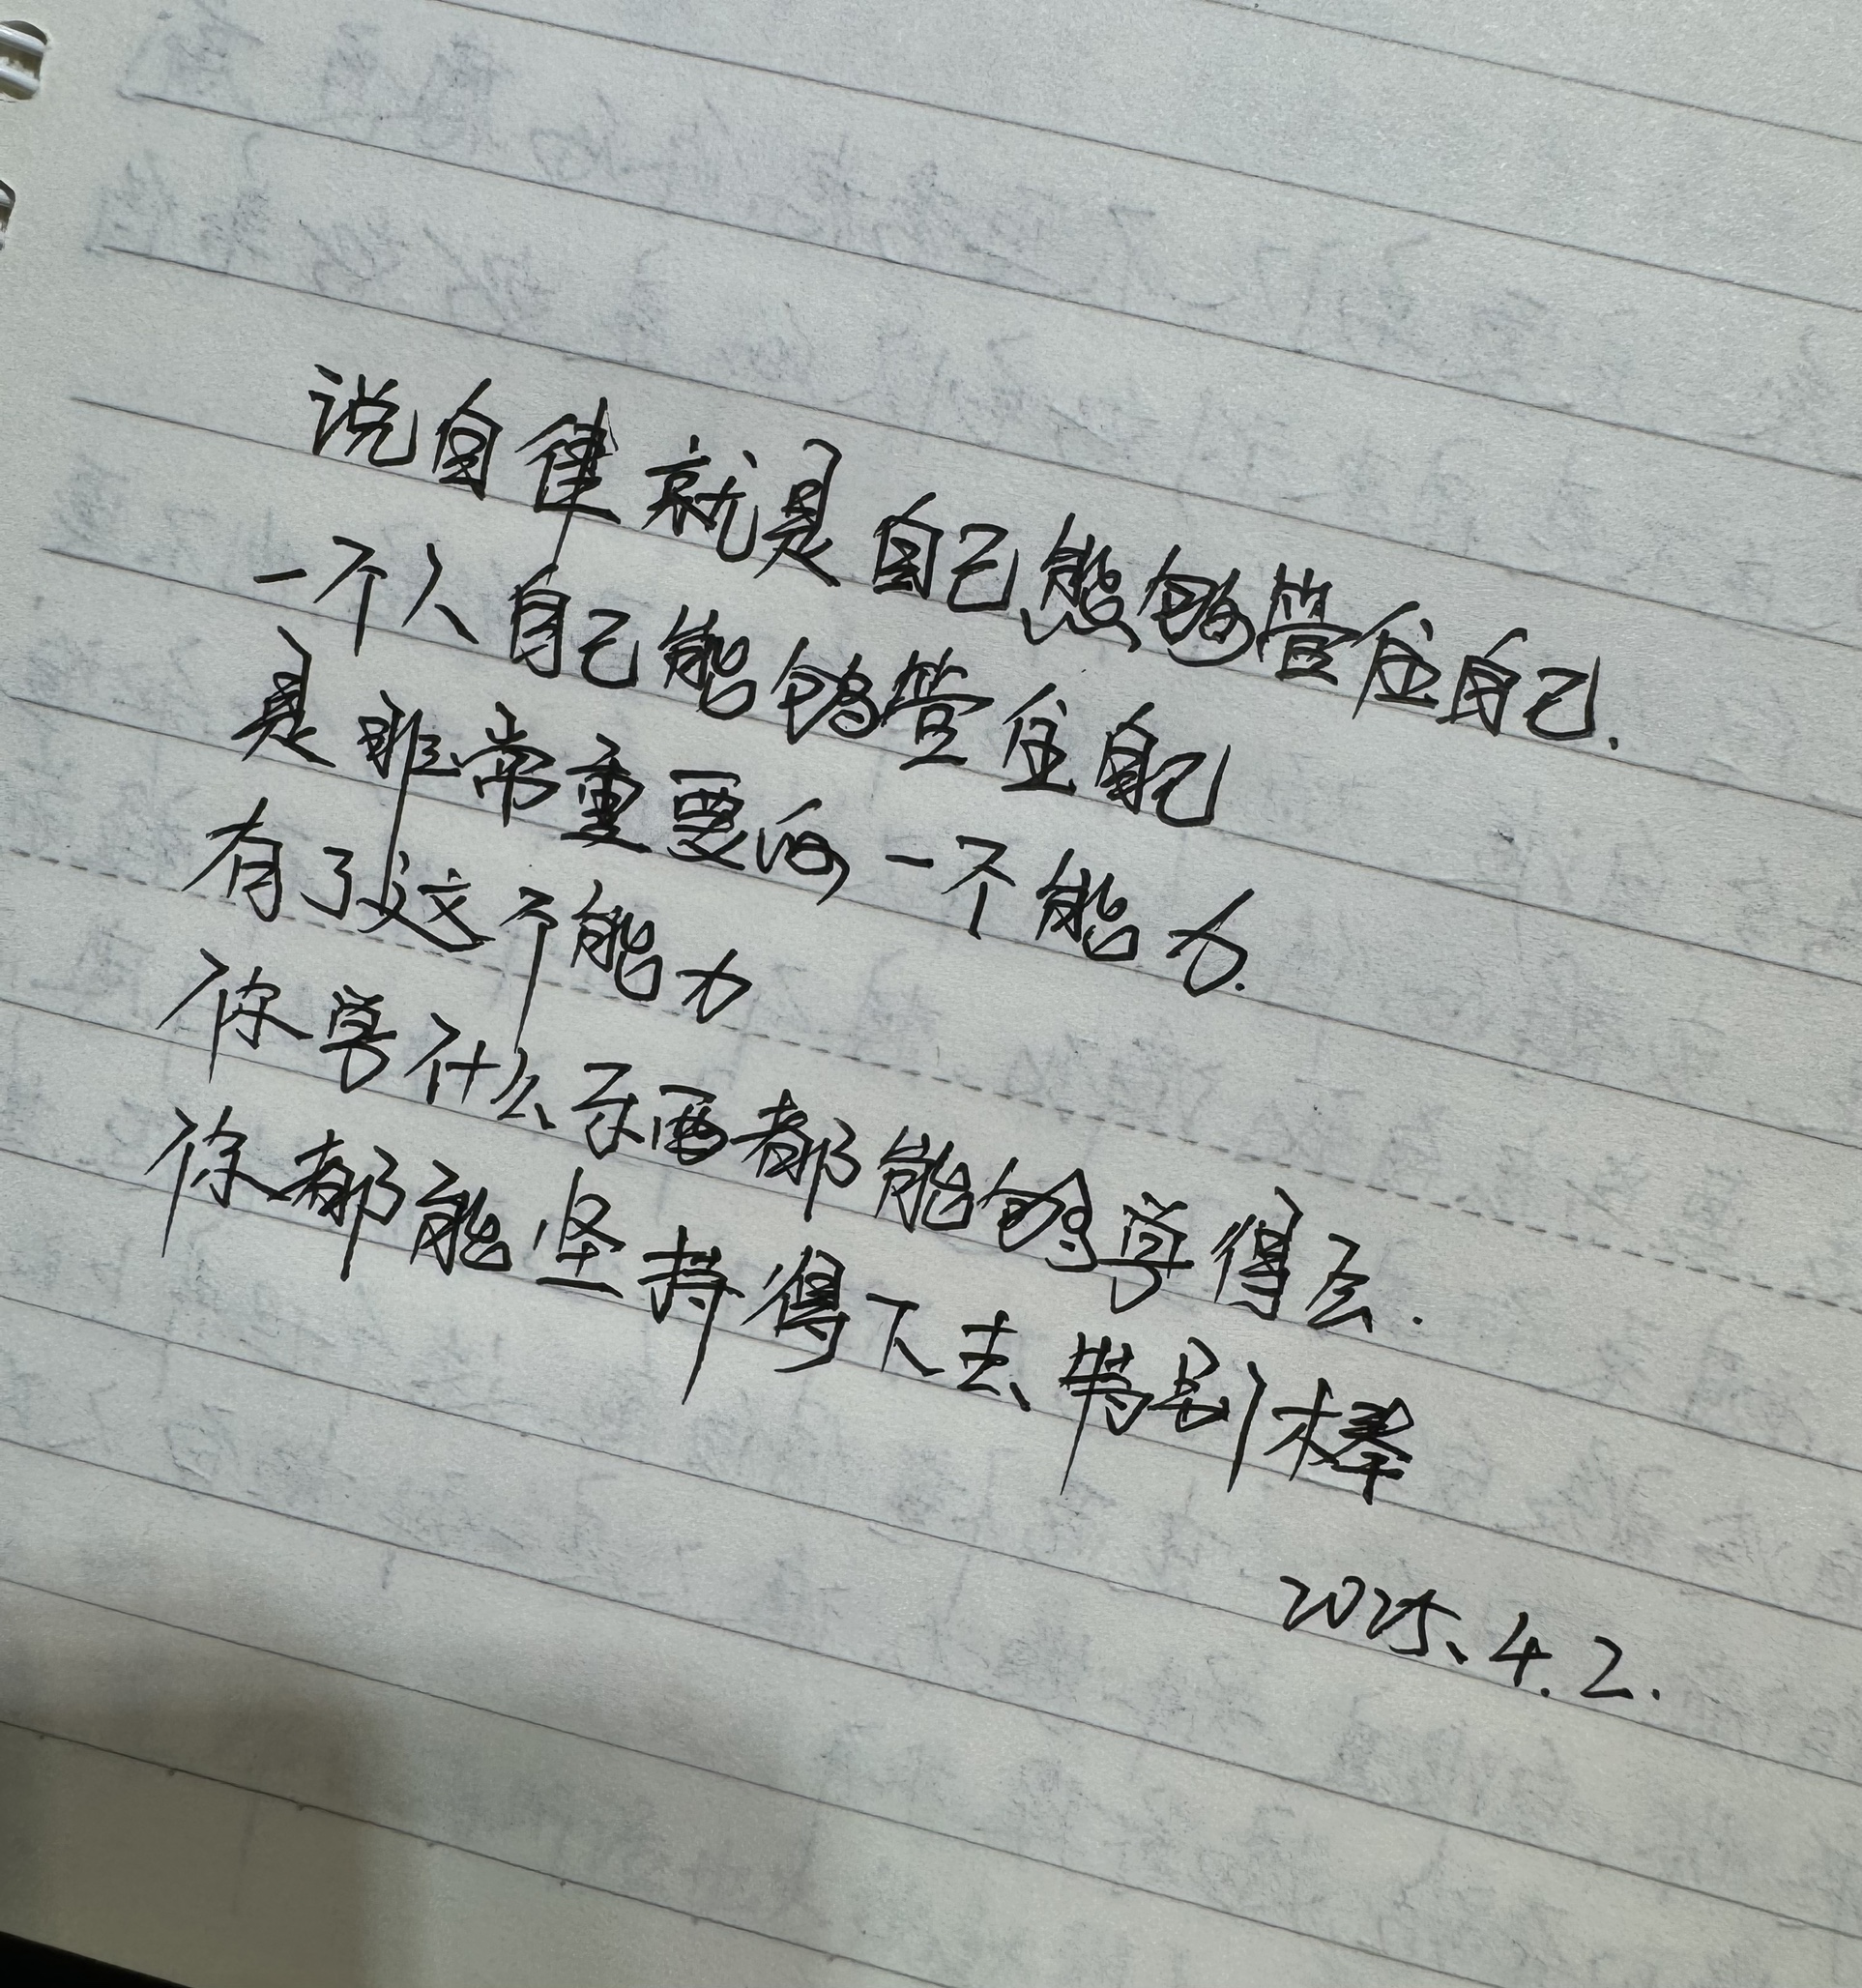 说自律就是自己能够管住自己.
一个人自己能够管住自己
是非常重要的一个能力.
有了这个能力
你学什么东西都能够学得会.
你都能坚持得下去特别棒
2025.4.2.